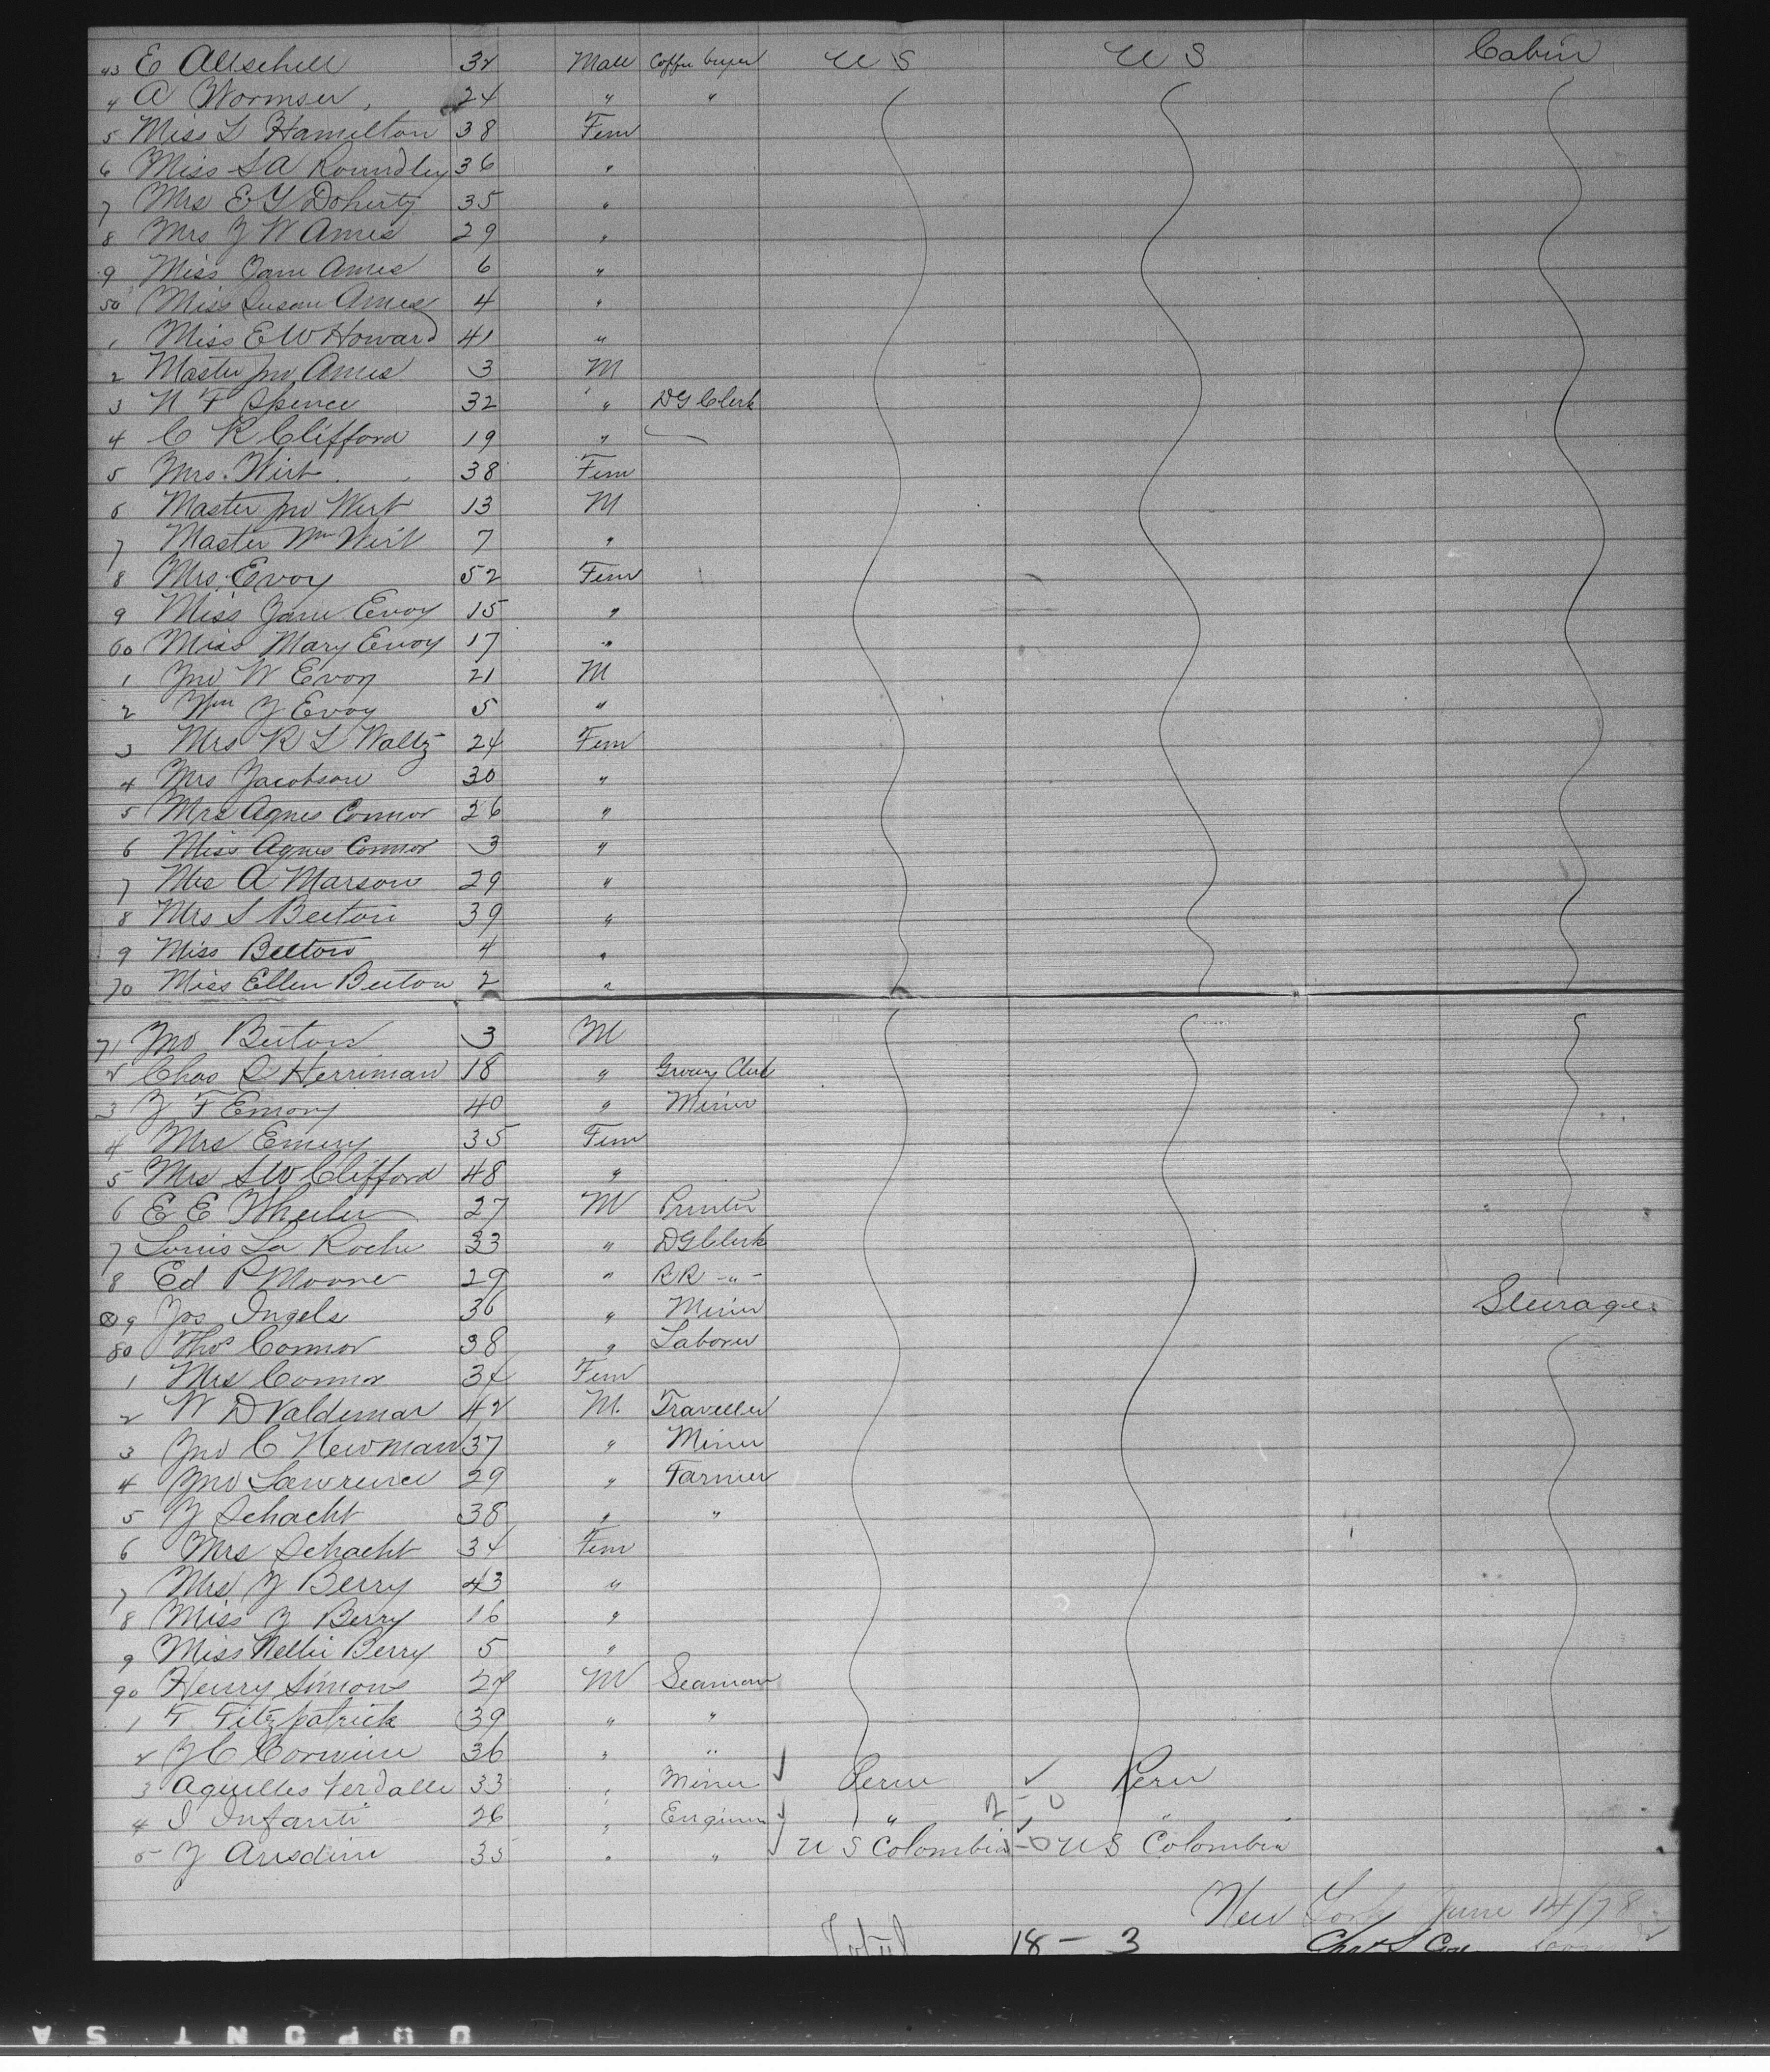 43 E Altschell 32 Male Coffee buyer U S U S Cabin
4 A Wormser, 24 " "
5 Miss L Hamilton 38 Fem
6 Miss S A Roundley 36 "
7 Mrs E Y Doherty 35 "
8 Mrs J W Ames 29 "
9 Miss Jane Ames 6 "
50 Miss Susan Ames 4 "
1 Miss E W Howard 41 "
2 Master Jno Ames 3 M
3 N F Spence 32 " D G Clerk
4 C R Clifford 19 " —
5 Mrs. Wirt 38 Fem
6 Master Jno Wirt 13 M
7 Master Wm Wirt 7 "
8 Mrs. Evoy 52 Fem
9 Miss Jane Evoy 15 "
60 Miss Mary Evoy 17 "
1 Jno W Evoy 21 M
2 Wm J Evoy 5 "
3 Mrs R L Waltz 24 Fem
4 Mrs Jacobson 30 "
5 Mrs Agnes Connor 26 "
6 Miss Agnes Connor 3 "
7 Mrs A Marson 29 "
8 Mrs S Beeton 39 "
9 Miss Beeton 4 "
70 Miss Ellen Beeton 2 "
71 Jno Beeton 3 M
2 Chas S Herriman 18 " Grocery Clerk
3 J F Emory 40 " Miner
4 Mrs Emery 35 Fem
5 Mrs S W Clifford 48 "
6 E E Wheeler 27 M Printer
7 Louis La Roche 33 " D G Clerk
8 Ed P Moore 29 " R R - " -
9 Jos Ingels 36 " Miner Steerage
80 Thos Connor 38 " Laborer
1 Mrs Connor 34 Fem
2 W D Valdemar 42 M. Traveller
3 Jno C Newman 37 " Miner
4 Jno Lawrence 29 " Farmer
5 J Schacht 38 " "
6 Mrs Schacht 34 Fem
7 Mrs J Berry 43 "
8 Miss J Berry 16 "
9 Miss Nellie Berry 5 "
90 Henry Simons 24 M Seaman
1 F. Fitzpatrick 39 " "
2 J C Corwine 36 " "
3 Aquilles Verdalle 33 " Miner Peru Peru
4 I Infanti 26 " Engineer " "
5 J Arisdini 35 " " U S Colombia U S Colombia
New York June 14/78
Total 18 - 3 Chas S
DUPONT SA